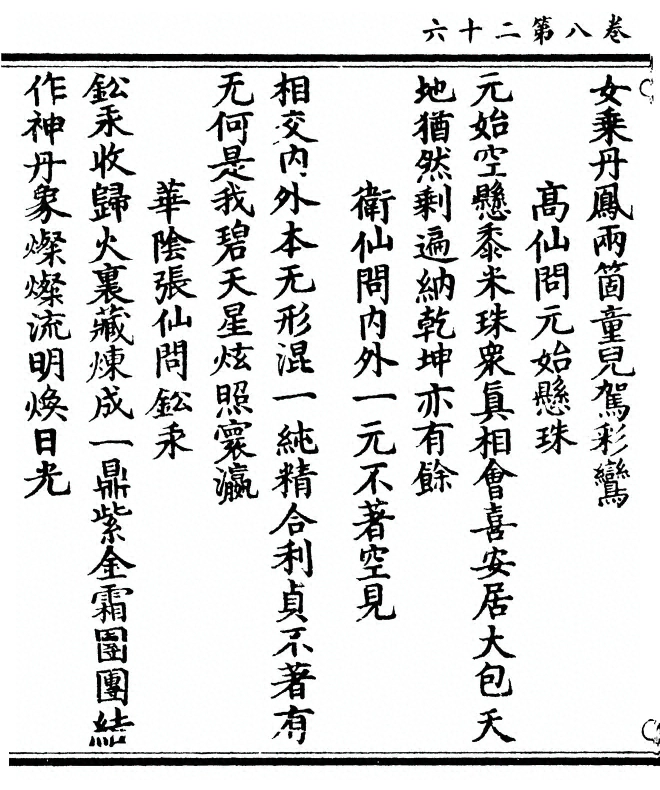 卷八第二十六
女乗丹鳳兩箇童兒駕彩鸞
高仙問元始懸珠
元始空懸黍米珠衆真相會喜安居大包天
地猶然剩遍納乾坤亦有餘
衛仙問内外一元不著空見
相交内外本无形混一純精合利貞不著有
无何是我碧天星炫照寰瀛
華陰張仙問鈆汞
鈆汞收歸火裏藏煉成一鼎紫金霜團團結
作神丹象燦燦流明煥日光